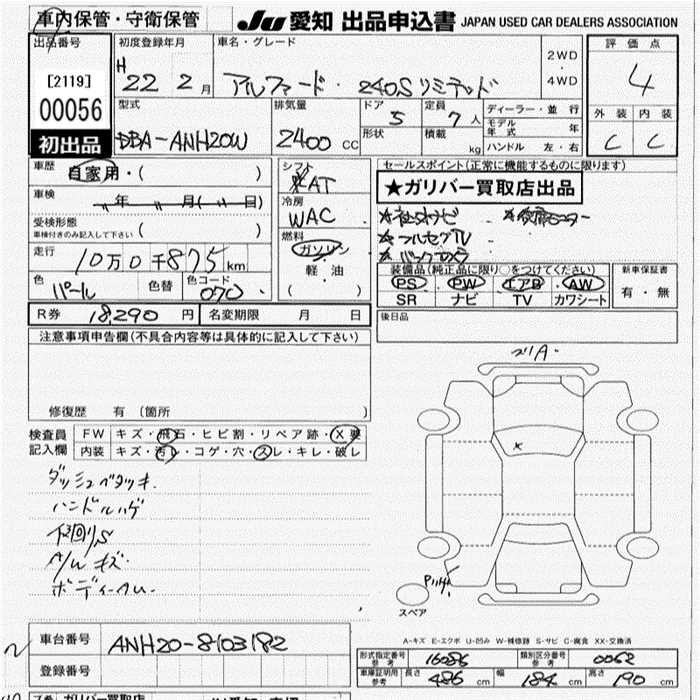 車内保管・守衛保管
JU 愛知 出品申込書 JAPAN USED CAR DEALERS ASSOCIATION
出品番号
[2119]
00056
初出品
初度登録年月
H 22 2月
車名・グレード
アルファード・240Sリミテッド
2WD
・
4WD
評価点
4
外装 内装
C C
型式
DBA-ANH20W
排気量
2400 CC
ドア
5
定員
7人
形状
積載
kg
ディーラー・並行
モデル年式 年
ハンドル 左・右
車歴
自家用・( )
車検
年 月( 日)
受検形態
車検付きのみ記入して下さい ( )
走行
10万0千875km
色
パール
色替
色コード
070
シフト
AT
冷房
WAC
燃料
ガソリン
軽・油
( )
セールスポイント(正常に機能するものに限ります)
★ガリバー買取店出品
★フルセグTV
装備品(純正品に限り○をつけてください)
PS PW エアB AW
SR ナビ TV カワシート
新車保証書
有・無
後日品
R券 18,290円
名変期限 月 日
注意事項申告欄(不具合内容等は具体的に記入して下さい)
修復歴 有 (箇所 )
検査員
記入欄
FW キズ・飛石・ヒビ割・リペア跡・X要
内装 キズ・汚レ・コゲ・穴・スレ・キレ・破レ
ダッシュベタツキ
ハンドルハゲ
下回りS
A/Wキズ
スペア
A-キズ E-エクボ U-凹み W-補修跡 S-サビ C-腐食 XX-交換済
車台番号
ANH20-8103182
登録番号
形式指定番号
参考
16086
類別区分番号
参考
0062
車庫証明用
参考
長さ 486 cm 幅 184 cm 高さ 190 cm
ガリバー買取店